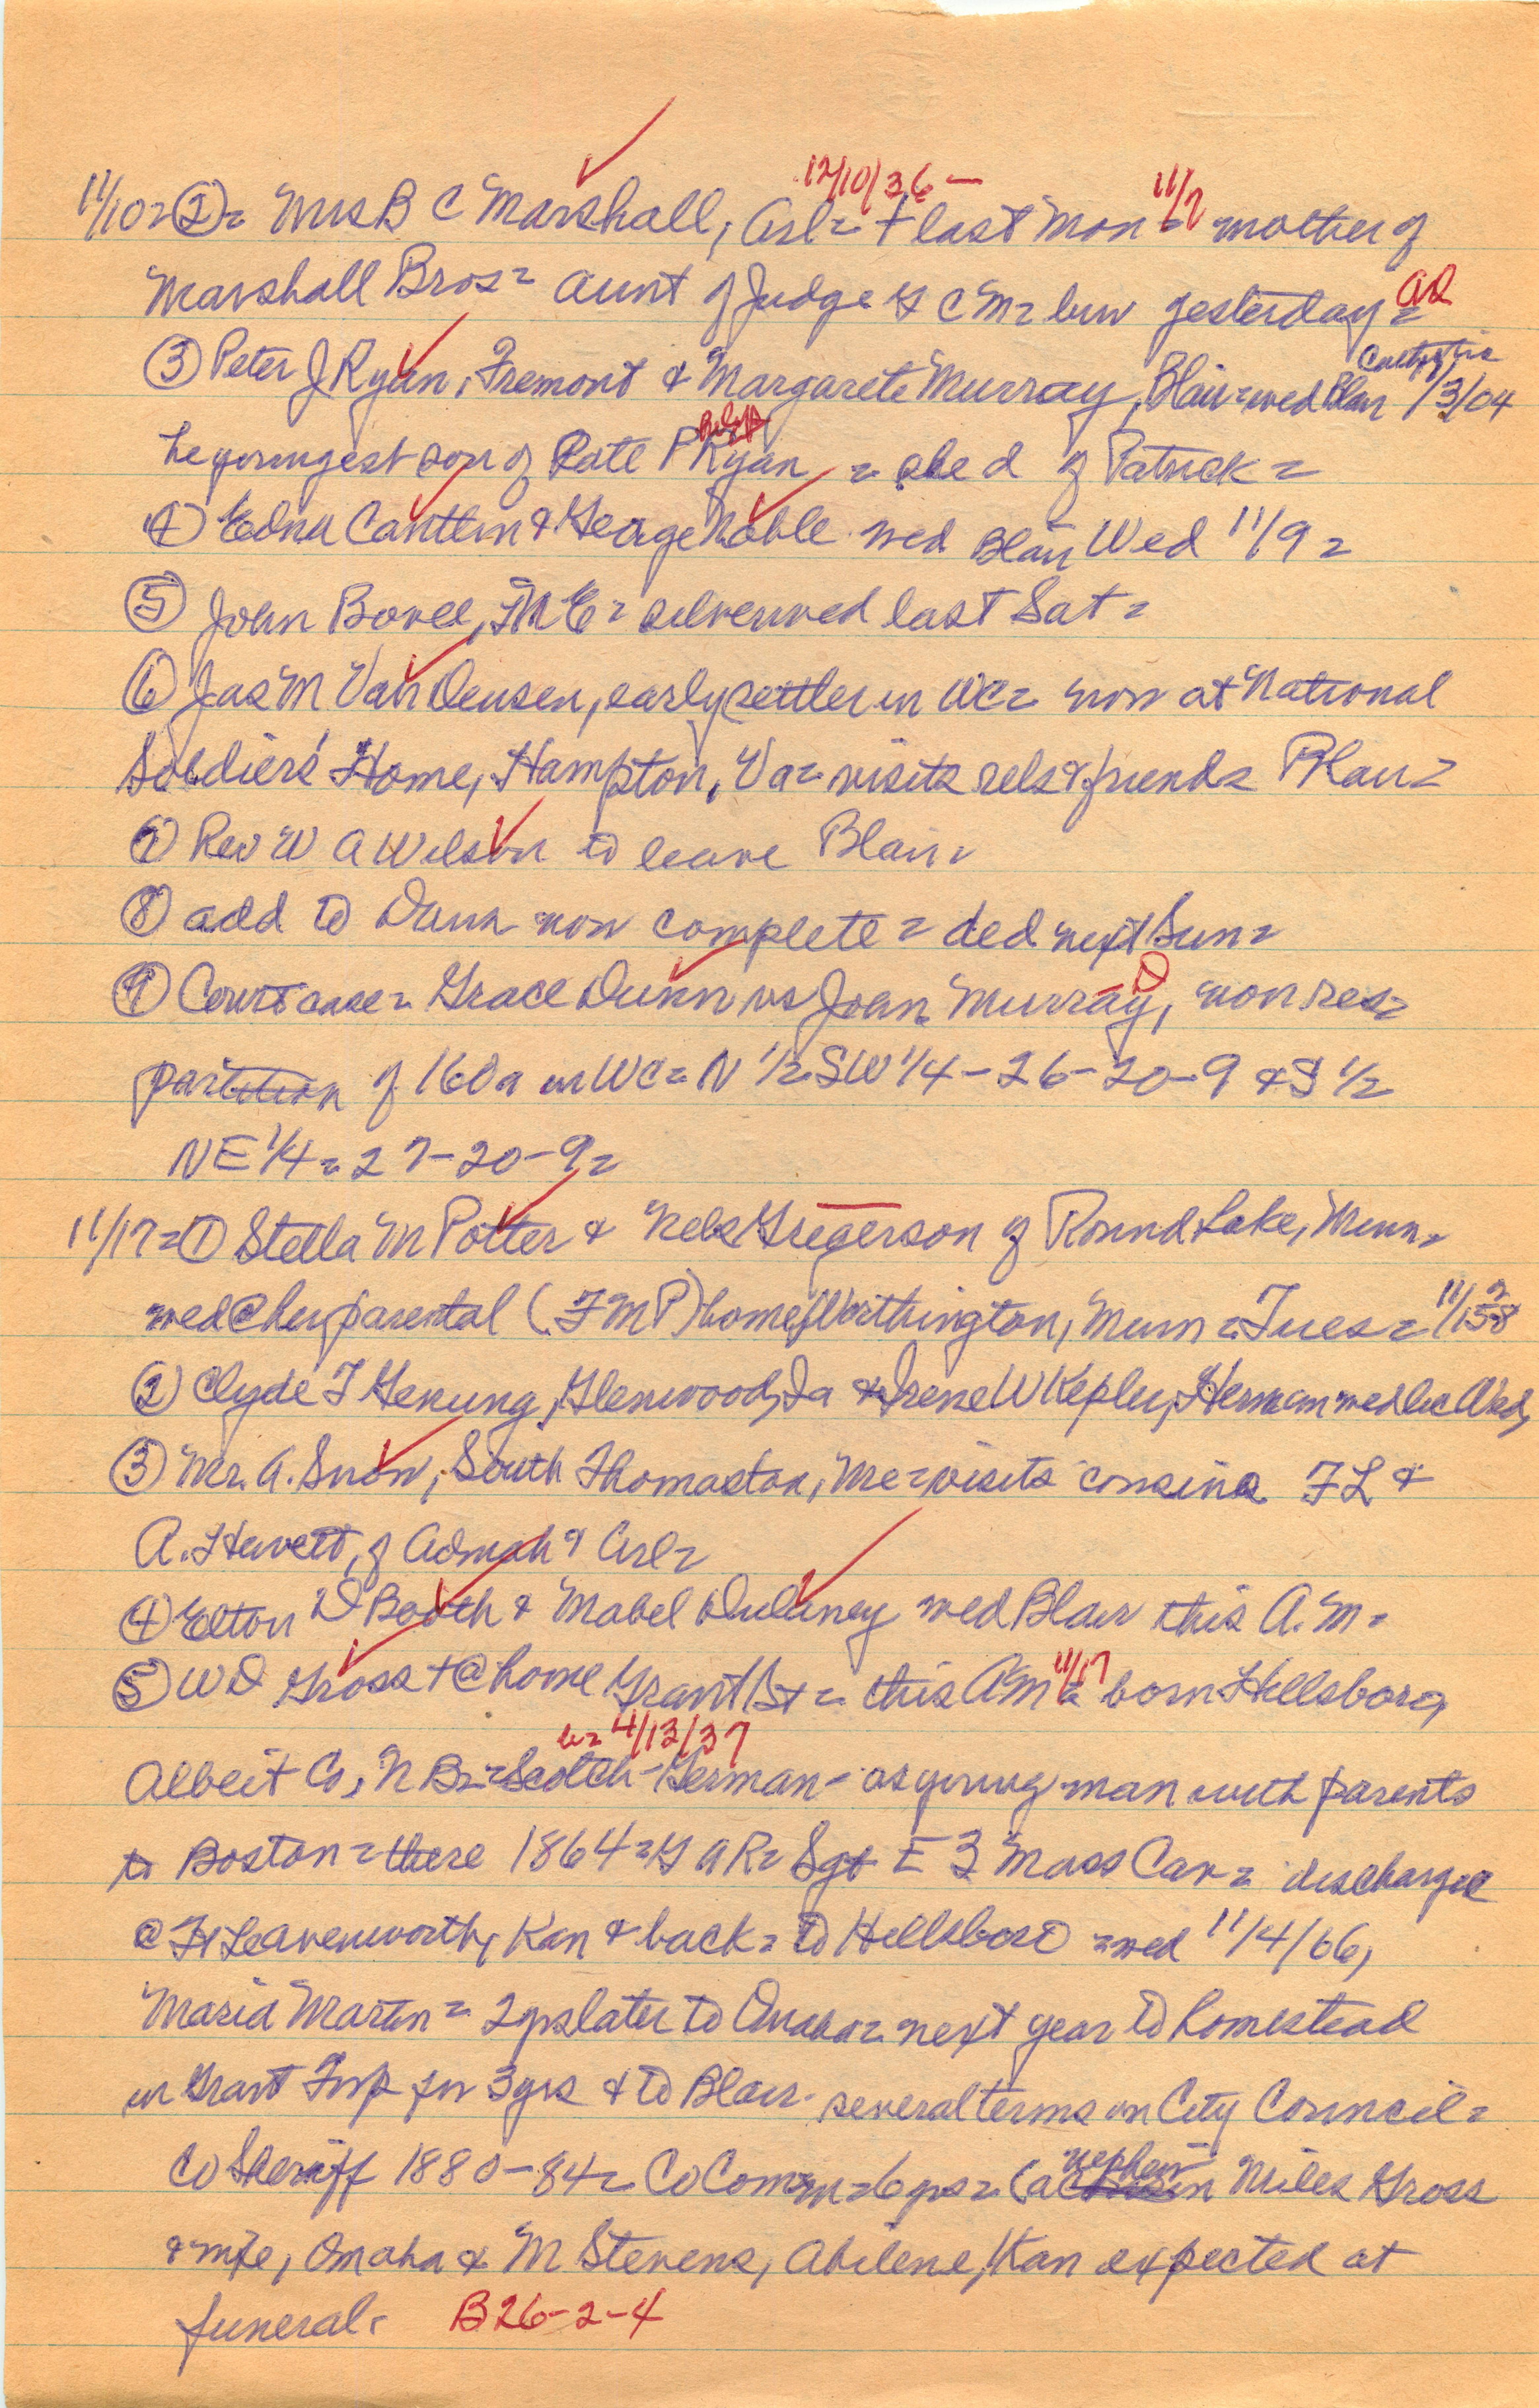 12/10/36 — 11/7
11/10 = ② = Mrs B C Marshall, Arl = + last Mon = mother of
Marshall Bros = aunt of Judge G C M = bur yesterday =
③ Peter J Ryan, Fremont & Margarete Murray, Blair = wed Blair 1/3/04
he youngest son of Pate P Ryan = she d of Patrick =
④ Edna Cantlin & George Noble wed Blair Wed 11/9 =
⑤ John Bovee, = silver wed last Sat =
⑥ Jas M Van Deusen, early settler in WC = now at National
Soldiers' Home, Hampton, Va = visits rels & friends Blair =
⑦ Rev W A Wilson to leave Blair =
⑧ add to Dana now complete = ded next Sun =
⑨ Court case = Grace Dunn vs John Murray, non res =
partition of 160a in WC = N 1/2 SW 1/4 - 26 - 20 - 9 & S 1/2
NE 1/4 = 27 - 20 - 9 =
11/17 = ① Stella M Potter & Nels Gregerson of Round Lake, Minn =
wed @ her parental (FMP) home, Worthington, Minn = Tues =
② Clyde F Genung, Glenwood, Ia & Irene W Kepler, Herman wed lic Wed,
③ Mr. A. Snow, South Thomaston, Me = visits cousins FL &
A. Hewett, of Admah & Arl =
④ Elton D Booth & Mabel Dulaney wed Blair this A.M. =
⑤ W D Gross + @ home Grant St = this AM 11/17 = born Hillsboro,
b = 4/13/37
Albert Co, N B = Scotch-German - as young man with parents
to Boston = there 1864 = G A R = Sgt E 3 Mass Cav = discharged
@ Ft Leavenworth, Kan & back = to Hillsboro = wed 11/4/66,
Maria Martin = 2 yrs later to Omaha = next year to homestead
in Grant Twp for 3 yrs & to Blair. several terms on City Council =
Co Sheriff 1880-84 = Co Comm = 6 yrs = (a nephew Miles Gross
& wife, Omaha & M Stevens, Abilene, Kan expected at
funeral. B 26-2-4